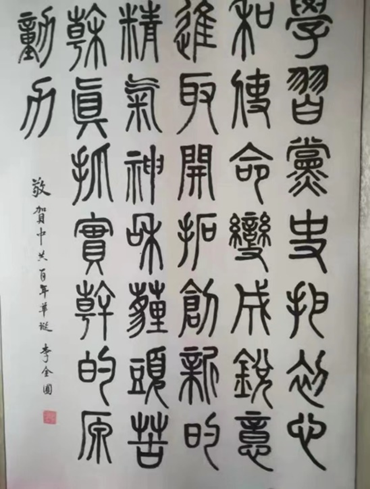 學習黨史把初心
和使命變成銳意
進取開拓創新的
精氣神和薶頭苦
榦眞抓實幹的原
動力
敬賀中共百年華誕 李